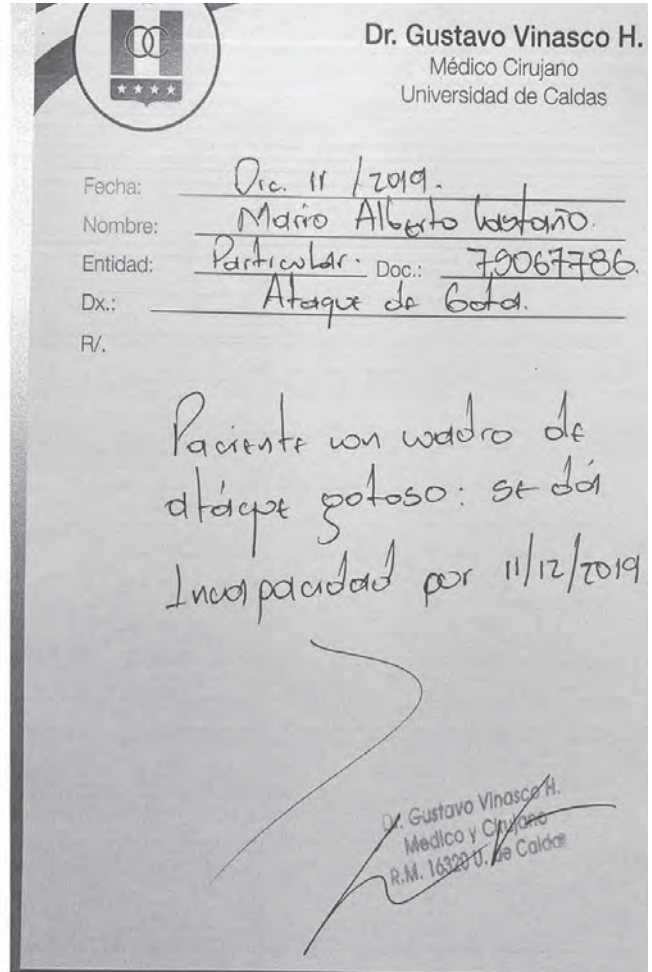 OC
Dr. Gustavo Vinasco H.
Médico Cirujano
Universidad de Caldas
Fecha: Dic. 11 / 2019.
Nombre: Mario Alberto Castaño.
Entidad: Particular. Doc.: 79067786.
Dx.: Ataque de Gota.
R/.
Paciente con cuadro de
atáque gotoso: se dá
Incapacidad por 11/12/2019
Dr. Gustavo Vinasco H.
Medico y Cirujano
R.M. 16320 U. de Caldas